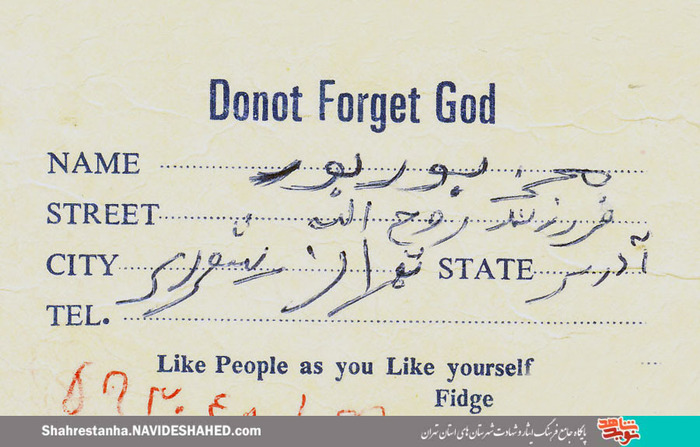 Donot Forget God
NAME پور پور
STREET فرزند روح الله
CITY تهران شهرری STATE آدرس
TEL.
Like People as you Like yourself
Fidge
Shahrestanha.NAVIDESHAHED.com پایگاه جامع فرهنگ ایثار و شهادت شهرستان های استان تهران نوید شاهد